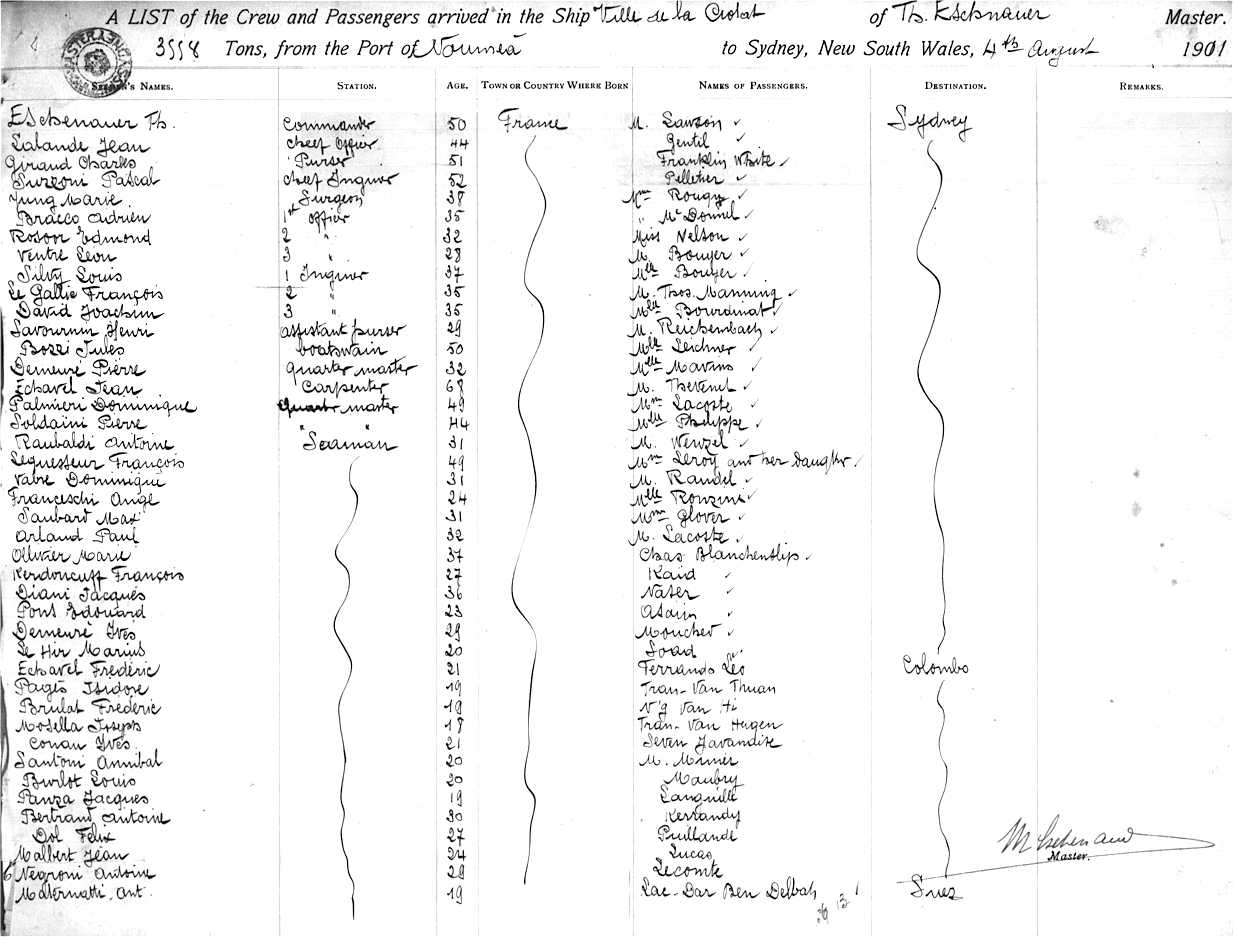 A LIST of the Crew and Passengers arrived in the Ship Ville de la Ciotat of Th. Eschenauer Master.
3558 Tons, from the Port of Nouméa to Sydney, New South Wales, 4th August 1901
SEAMEN'S NAMES. STATION. AGE. TOWN OR COUNTRY WHERE BORN NAMES OF PASSENGERS. DESTINATION. REMARKS.
Eschenauer Th. Commander 50 France M. Lawson Sydney
Lalande Jean cheef Officer 44 Gentil
Giraud Charles Purser 51 Franklin White
Suzzoni Pascal cheef Inguier 52 Pelletier
Jung Marie. Surgeon 37 Mme Rougy
Bracco Adrien 1st officer 35 " Mc Donnel
Rosoor Edmond 2 " 32 Miss Nelson
Ventre Léon 3 " 28 M. Bouyer
Silvy Louis 1 Inguier 37 Mlle Bouyer
Le Gallic François 2 " 35 M. Thos. Manning
David Joachim 3 " 35 Mlle Bourdinat
Savournin Henri assistant purser 29 M. Reichembach
Bozzi Jules boatswain 50 Mlle Leichner
Demeuré Pierre quarter master 32 Mlle Mavins
Echavel Jean Carpenter 68 M. Thevenet
Palmieri Dominique Quart master 49 Mme Lacoste
Soldaini Pierre " 44 Mlle Philippe
Raubaldi Antoine Seaman 31 M. Wenzel
Lequesseur François 49 Mme Leroy and her daughter
Vatre Dominique 31 M. Randel
Franceschi Ange 24 Mlle Ronzini
Saubart Max 31 Mme Glover
Arland Paul 32 M. Lacoste
Ollivier Marie 37 Chas Blanchenship
Kerdoncuff François 27 Kaid
Diani Jacques 36 Naser
Pons Edouard 23 Asain
Demeuré Yves 29 Moucher
Le Hir Marius 20 Soad
Echavel Frédéric 21 Ferrando Léo Colombo
Pagès Isidore 19 Tran-Van Thuan
Brulat Frédéric 19 N'g Van Hi
Mosella Joseph 18 Tran-Van Hugen
Conan Yves 21 Seven Javandise
Santoni Annibal 20 M. Mimier
Burlot Louis 20 Maubry
Panza Jacques 19 Languille
Bertrand Antoine 30 Kerrandy
Dol Félix 27 Puillande
Malbert Jean 24 Lucas M Eschenauer
Master.
Negroni Antoine 29 Lecomte
Maternatti Ant. 19 Lac-Dar Ben Desbah Suez